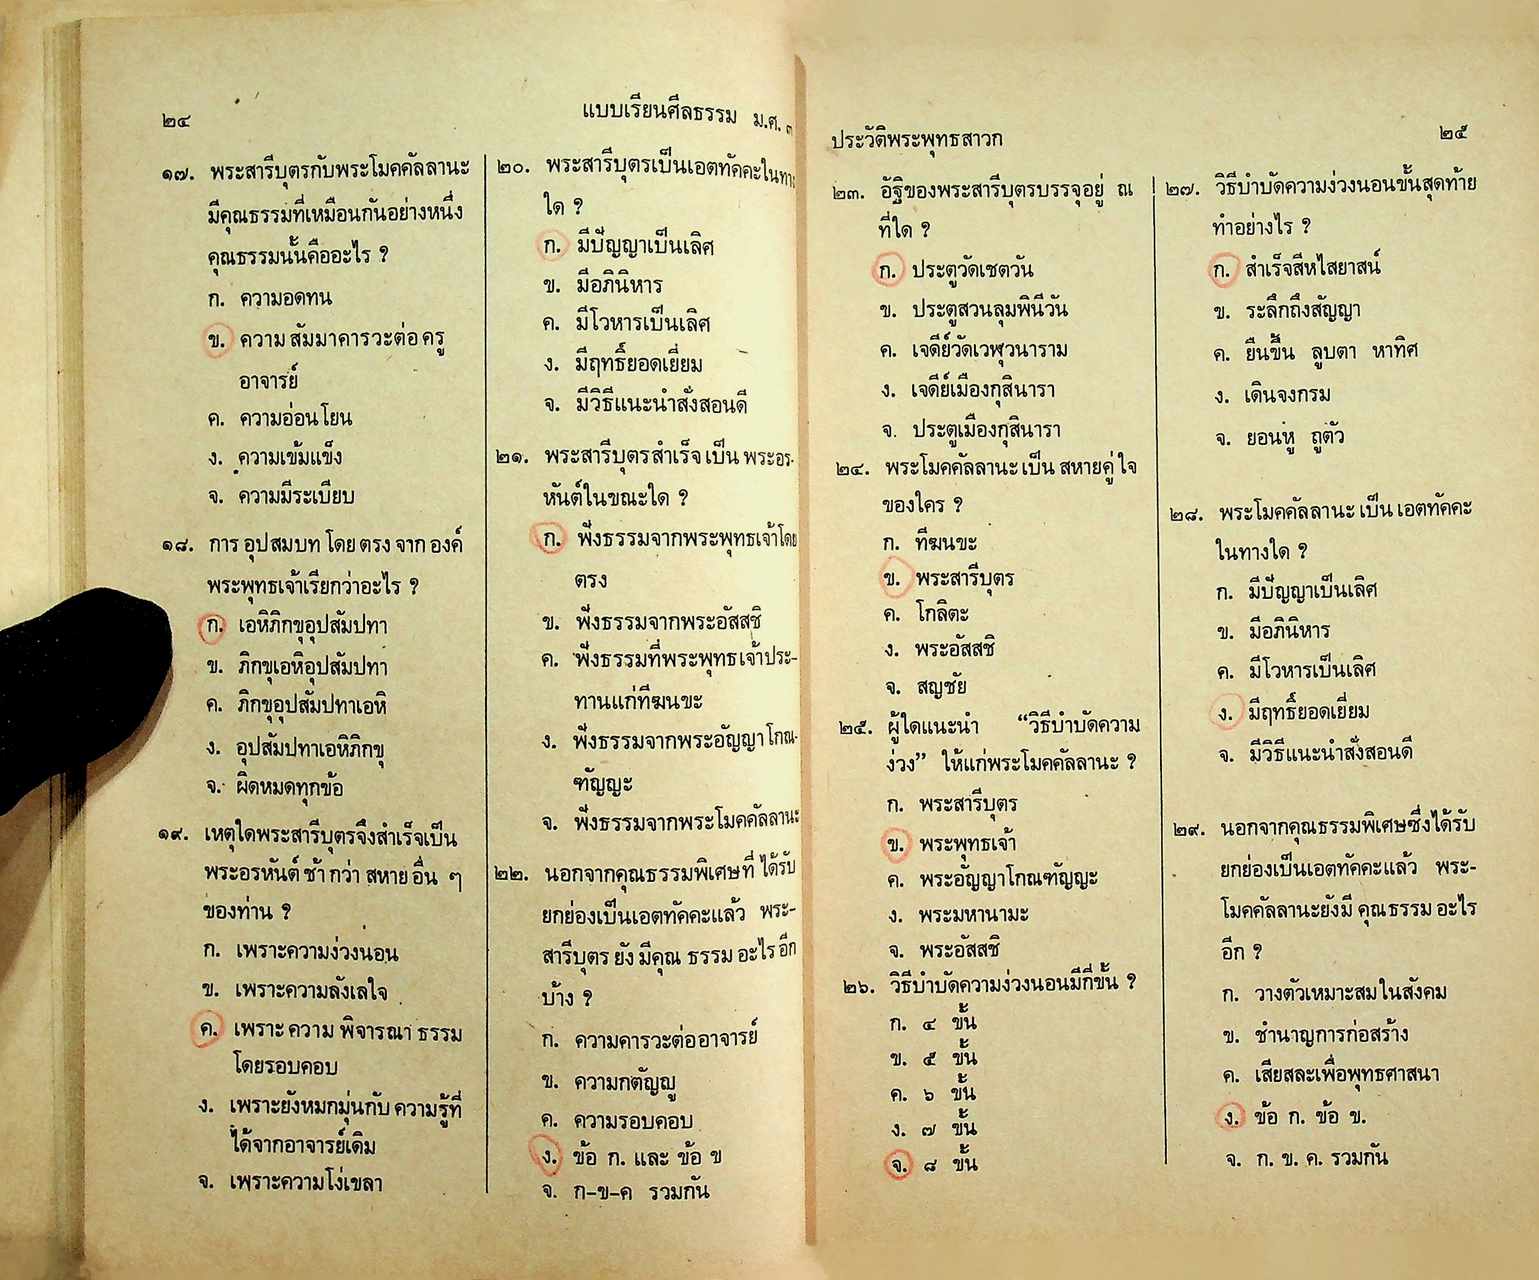 ๒๔
แบบเรียนศีลธรรม ม.ศ. ๓
๑๗. พระสารีบุตรกับพระโมคคัลลานะ
มีคุณธรรมที่เหมือนกันอย่างหนึ่ง
คุณธรรมนั้นคืออะไร ?
ก. ความอดทน
ข. ความสัมมาคารวะต่อครู
อาจารย์
ค. ความอ่อนโยน
ง. ความเข้มแข็ง
จ. ความมีระเบียบ
๑๘. การอุปสมบทโดยตรงจากองค์
พระพุทธเจ้าเรียกว่าอะไร ?
ก. เอหิภิกขุอุปสัมปทา
ข. ภิกขุเอหิอุปสัมปทา
ค. ภิกขุอุปสัมปทาเอหิ
ง. อุปสัมปทาเอหิภิกขุ
จ. ผิดหมดทุกข้อ
๑๙. เหตุใดพระสารีบุตรจึงสำเร็จเป็น
พระอรหันต์ช้ากว่าสหายอื่น ๆ
ของท่าน ?
ก. เพราะความง่วงนอน
ข. เพราะความลังเลใจ
ค. เพราะความพิจารณาธรรม
โดยรอบคอบ
ง. เพราะยังหมกมุ่นกับความรู้ที่
ได้จากอาจารย์เดิม
จ. เพราะความโง่เขลา
๒๐. พระสารีบุตรเป็นเอตทัคคะในทาง
ใด ?
ก. มีปัญญาเป็นเลิศ
ข. มีอภินิหาร
ค. มีโวหารเป็นเลิศ
ง. มีฤทธิ์ยอดเยี่ยม
จ. มีวิธีแนะนำสั่งสอนดี
๒๑. พระสารีบุตรสำเร็จเป็นพระอร-
หันต์ในขณะใด ?
ก. ฟังธรรมจากพระพุทธเจ้าโดย
ตรง
ข. ฟังธรรมจากพระอัสสชิ
ค. ฟังธรรมที่พระพุทธเจ้าประ-
ทานแก่ทีฆนขะ
ง. ฟังธรรมจากพระอัญญาโกณ-
ฑัญญะ
จ. ฟังธรรมจากพระโมคคัลลานะ
๒๒. นอกจากคุณธรรมพิเศษที่ได้รับ
ยกย่องเป็นเอตทัคคะแล้ว พระ-
สารีบุตรยังมีคุณธรรมอะไรอีก
บ้าง ?
ก. ความคารวะต่ออาจารย์
ข. ความกตัญญู
ค. ความรอบคอบ
ง. ข้อ ก. และ ข้อ ข
จ. ก-ข-ค รวมกัน
ประวัติพระพุทธสาวก
๒๕
๒๓. อัฐิของพระสารีบุตรบรรจุอยู่ ณ
ที่ใด ?
ก. ประตูวัดเชตวัน
ข. ประตูสวนลุมพินีวัน
ค. เจดีย์วัดเวฬุวนาราม
ง. เจดีย์เมืองกุสินารา
จ. ประตูเมืองกุสินารา
๒๔. พระโมคคัลลานะเป็นสหายคู่ใจ
ของใคร ?
ก. ทีฆนขะ
ข. พระสารีบุตร
ค. โกลิตะ
ง. พระอัสสชิ
จ. สญชัย
๒๕. ผู้ใดแนะนำ “วิธีบำบัดความ
ง่วง” ให้แก่พระโมคคัลลานะ ?
ก. พระสารีบุตร
ข. พระพุทธเจ้า
ค. พระอัญญาโกณฑัญญะ
ง. พระมหานามะ
จ. พระอัสสชิ
๒๖. วิธีบำบัดความง่วงนอนมีกี่ขั้น ?
ก. ๔ ขั้น
ข. ๕ ขั้น
ค. ๖ ขั้น
ง. ๗ ขั้น
จ. ๘ ขั้น
๒๗. วิธีบำบัดความง่วงนอนขั้นสุดท้าย
ทำอย่างไร ?
ก. สำเร็จสีหไสยาสน์
ข. ระลึกถึงสัญญา
ค. ยืนขึ้น ลูบตา หาทิศ
ง. เดินจงกรม
จ. ยอนหู ถูตัว
๒๘. พระโมคคัลลานะเป็นเอตทัคคะ
ในทางใด ?
ก. มีปัญญาเป็นเลิศ
ข. มีอภินิหาร
ค. มีโวหารเป็นเลิศ
ง. มีฤทธิ์ยอดเยี่ยม
จ. มีวิธีแนะนำสั่งสอนดี
๒๙. นอกจากคุณธรรมพิเศษซึ่งได้รับ
ยกย่องเป็นเอตทัคคะแล้ว พระ-
โมคคัลลานะยังมีคุณธรรมอะไร
อีก ?
ก. วางตัวเหมาะสมในสังคม
ข. ชำนาญการก่อสร้าง
ค. เสียสละเพื่อพุทธศาสนา
ง. ข้อ ก. ข้อ ข.
จ. ก. ข. ค. รวมกัน